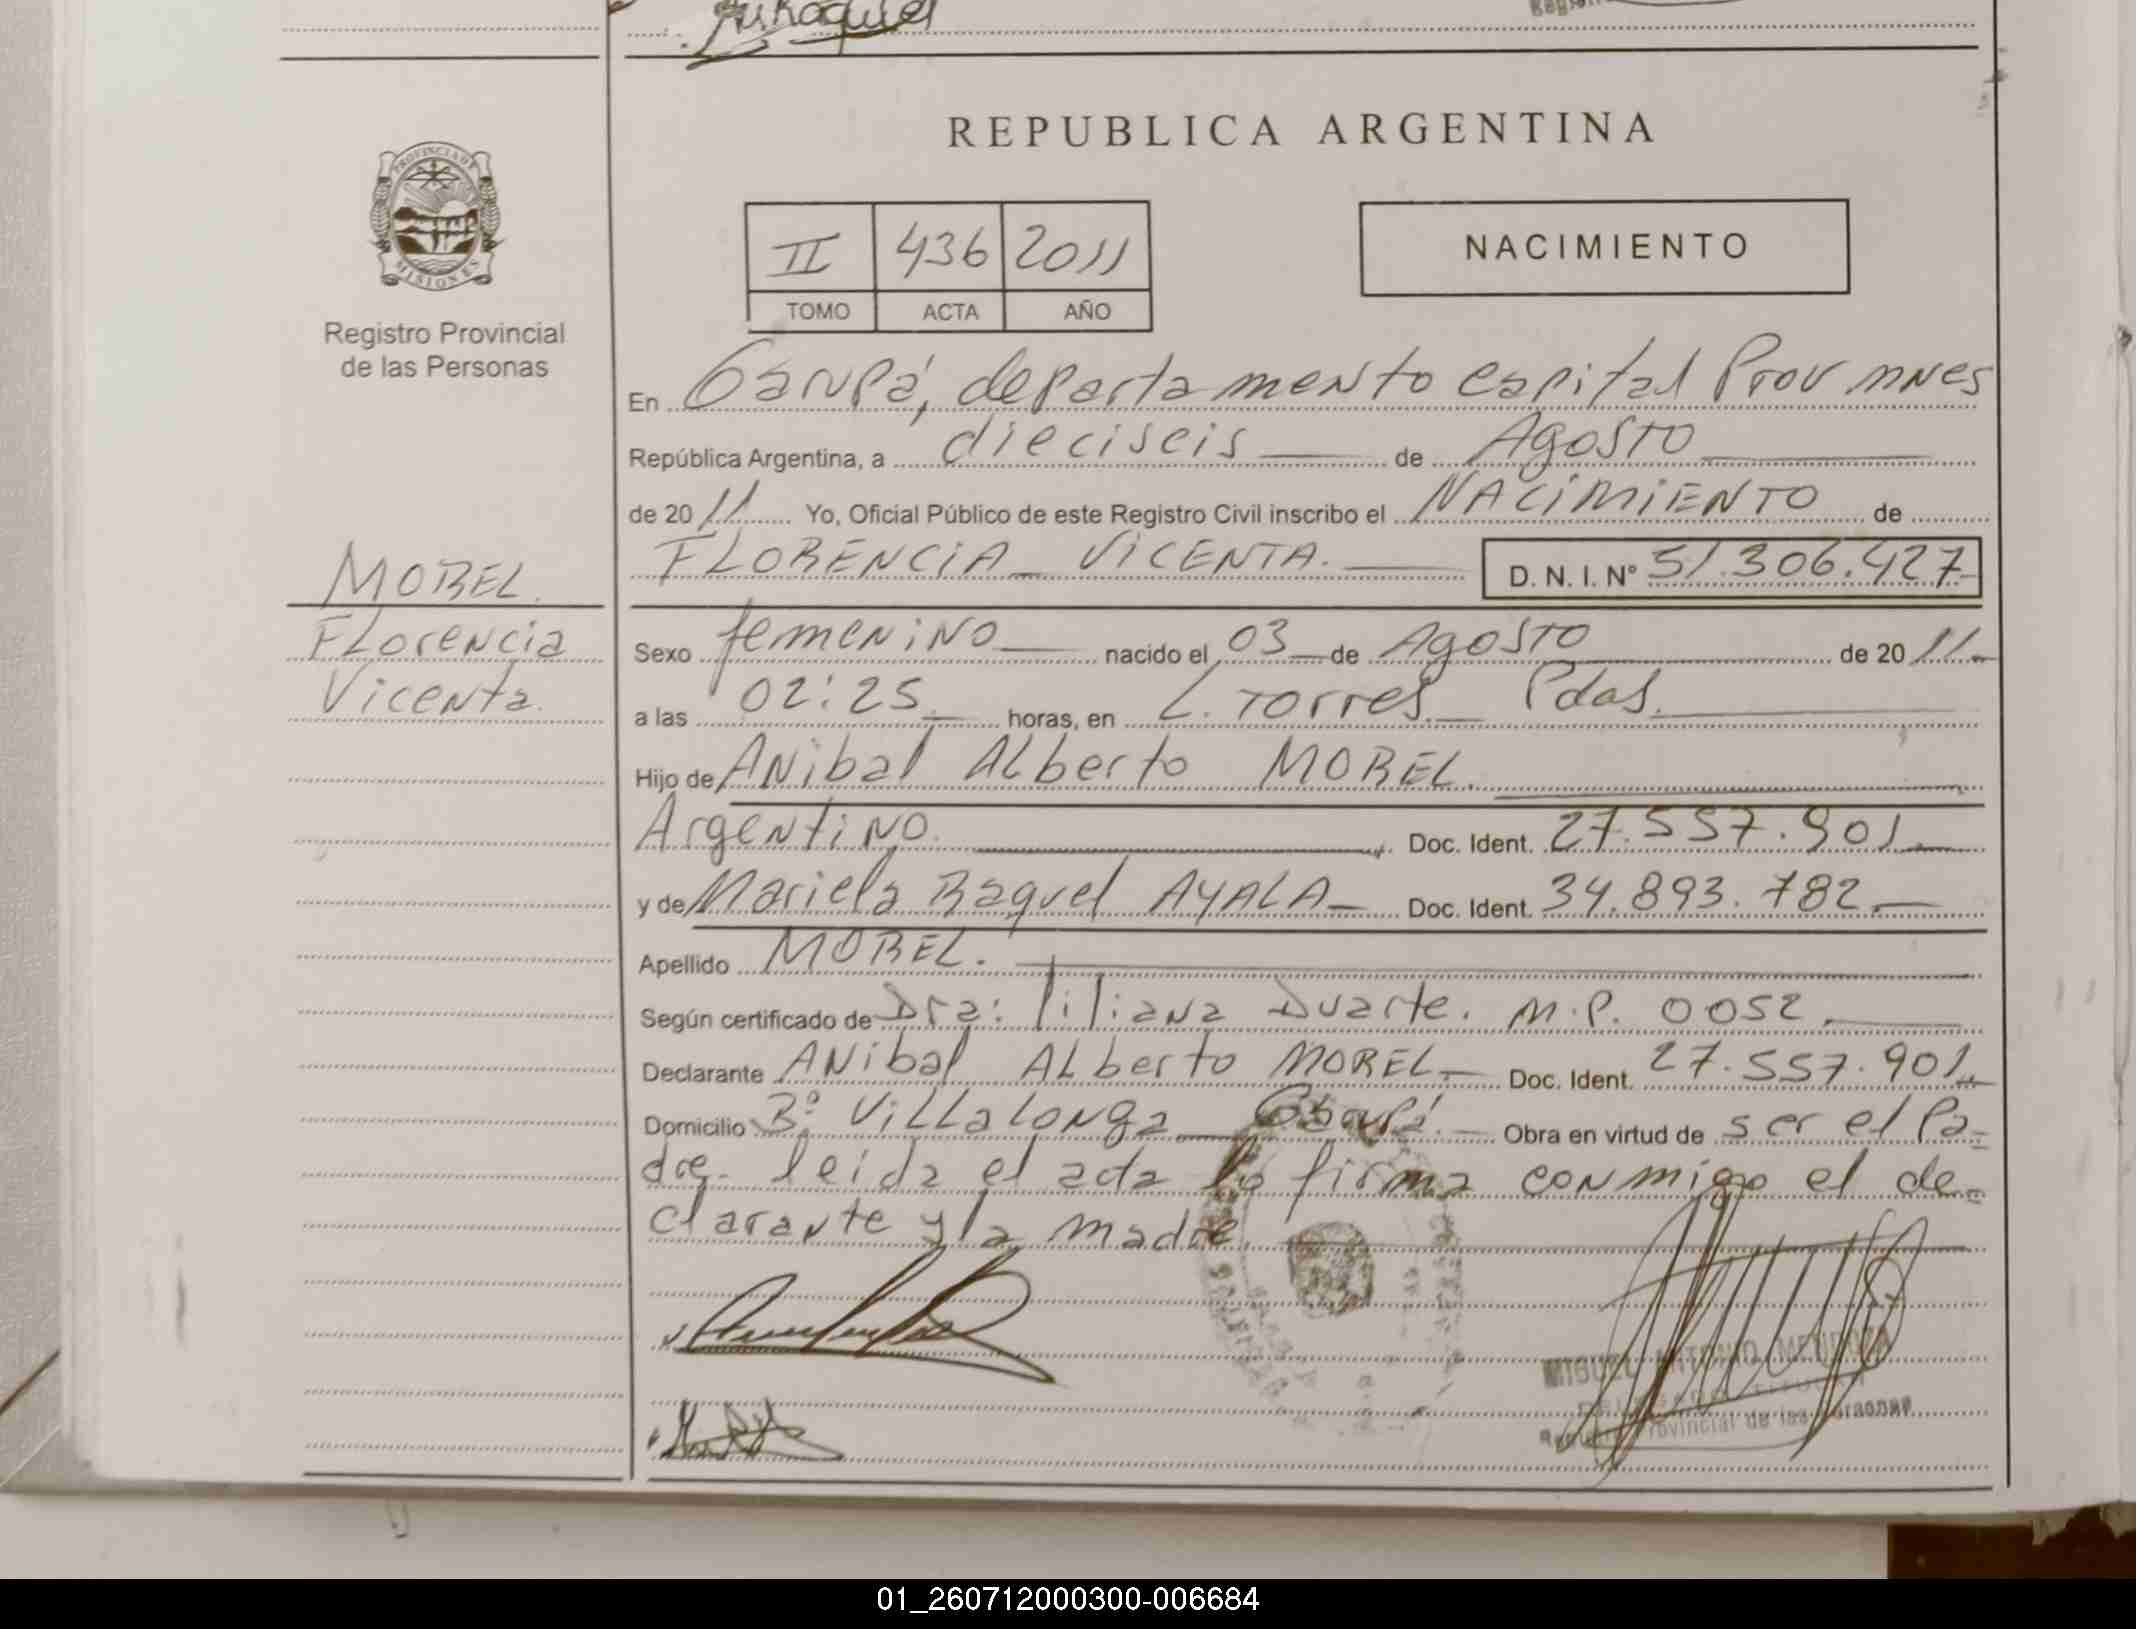 REPUBLICA ARGENTINA
PROVINCIA DE
MISIONES
Registro Provincial
de las Personas
II 436 2011
TOMO ACTA AÑO
NACIMIENTO
En Garupá, departamento capital Prov mnes
República Argentina, a dieciseis de Agosto
de 2011 Yo, Oficial Público de este Registro Civil inscribo el NACIMIENTO de
FLORENCIA VICENTA. D. N. I. Nº 51.306.427
MOREL.
Florencia
Vicenta.
Sexo femenino nacido el 03 de Agosto de 2011
a las 02:25 horas, en L. Torres Pdas.
Hijo de Anibal Alberto MOREL.
Argentino. Doc. Ident. 27.557.901
y de Mariela Raquel AYALA Doc. Ident. 34.893.782
Apellido MOREL.
Según certificado de Dra: liliana Duarte. M.P. 0052
Declarante Anibal Alberto MOREL Doc. Ident. 27.557.901
Domicilio Bº Villalonga Garupá. Obra en virtud de ser el Pa-
dre. leida el acta lo firma conmigo el de-
clarante y la madre.
MIGUEL ANTONIO MENDOZA
Provincial de las Personas
01_260712000300-006684